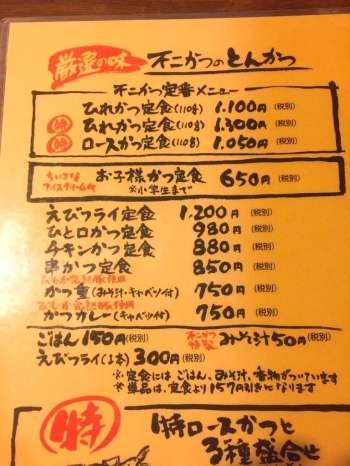 厳選の味 不二かつのとんかつ
不二かつ定番メニュー
ひれかつ定食(110g) 1.100円(税別)
特 ひれかつ定食(110g) 1.300円(税別)
特 ロースかつ定食(110g) 1.050円(税別)
ちいさなアイスクリーム付 お子様かつ定食 650円(税別)
※小学生まで
えびフライ定食 1,200円(税別)
ひと口かつ定食 980円(税別)
チキンかつ定食 880円(税別)
串かつ定食 850円(税別)
ひむか特別豚使用
かつ重(みそ汁・キャベツ付) 750円(税別)
ひむか特別豚使用
かつカレー(キャベツ付) 750円(税別)
ごはん150円(税別) 不二かつ特製 みそ汁50円(税別)
えびフライ(1本) 300円(税別)
※定食には ごはん、みそ汁、香物がついています
※単品は、定食より157円引きになります
特 特ロースかつと
3種盛合せ